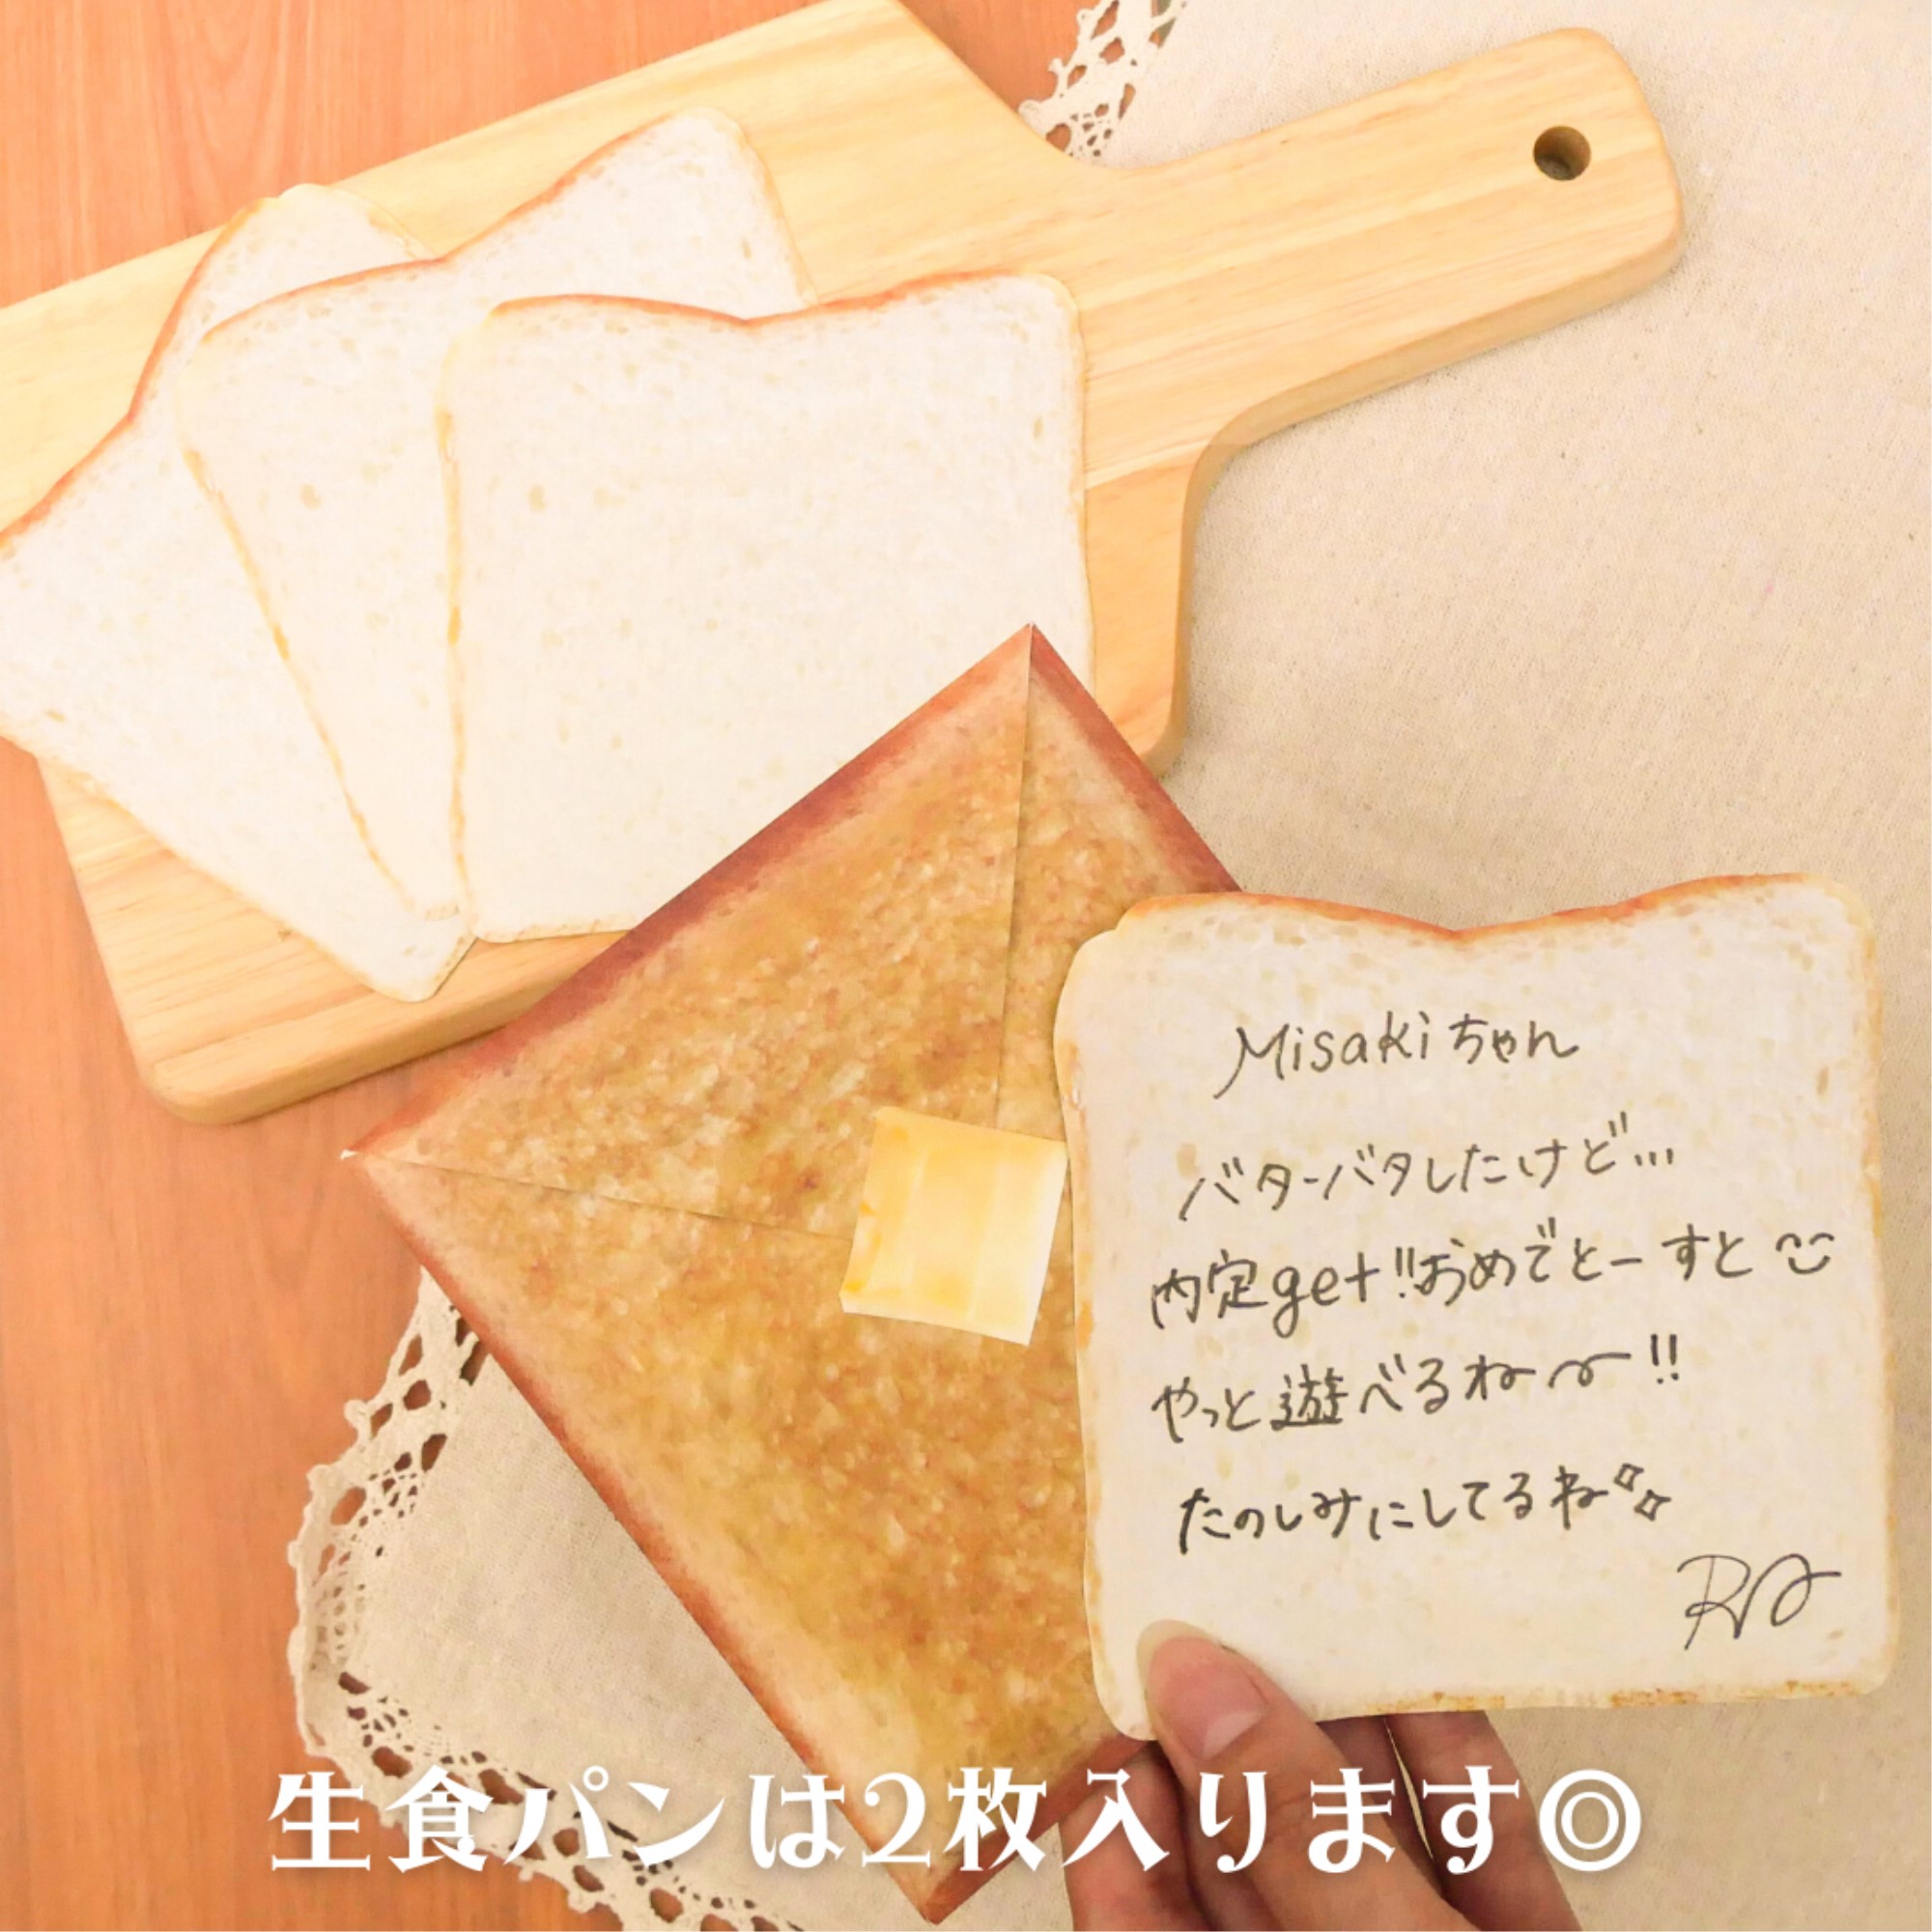 Misakiちゃん
バターバタしたけど...
内定get!!おめでとーすと
やっと遊べるねー!!
たのしみにしてるね
生食パンは2枚入ります◎